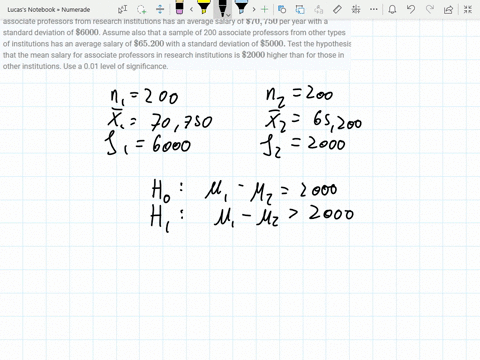 Lucas's Notebook » Numerade
associate professors from research institutions has an average salary of $70,750 per year with a
standard deviation of $6000. Assume also that a sample of 200 associate professors from other types
of institutions has an average salary of $65.200 with a standard deviation of $5000. Test the hypothesis
that the mean salary for associate professors in research institutions is $2000 higher than for those in
other institutions. Use a 0.01 level of significance.
n₁ = 200 n₂ = 200
x̄₁ = 70,750 x̄₂ = 65,200
S₁ = 6000 S₂ = 2000
H₀: μ₁ - μ₂ = 2000
H₁: μ₁ - μ₂ > 2000